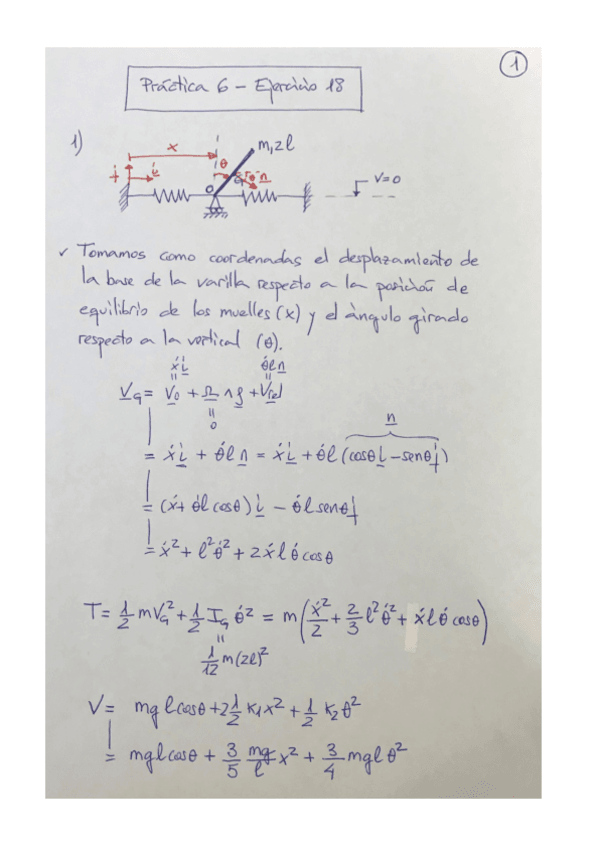 1
Práctica 6 - Ejercicio 18
1)
x
θ
m, 2l
j
i
G
n
O
V=0
✓ Tomamos como coordenadas el desplazamiento de
la base de la varilla respecto a la posición de
equilibrio de los muelles (x) y el ángulo girado
respecto a la vertical (θ).
ẋi
θ̇ln
V_G = V_0 + Ω ∧ ρ + V_rel
0
n
= ẋi + θ̇l n = ẋi + θ̇l (cosθi - senθj)
= (ẋ + θ̇l cosθ)i - θ̇l senθj
= ẋ² + l²θ̇² + 2ẋlθ̇cosθ
T = 1/2 mV_G² + 1/2 I_G θ̇² = m(ẋ²/2 + 2/3 l²θ̇² + ẋlθ̇cosθ)
1/12 m(2l)²
V = mglcosθ + 2 1/2 K₁x² + 1/2 K₂θ²
= mglcosθ + 3/5 mg/l x² + 3/4 mglθ²